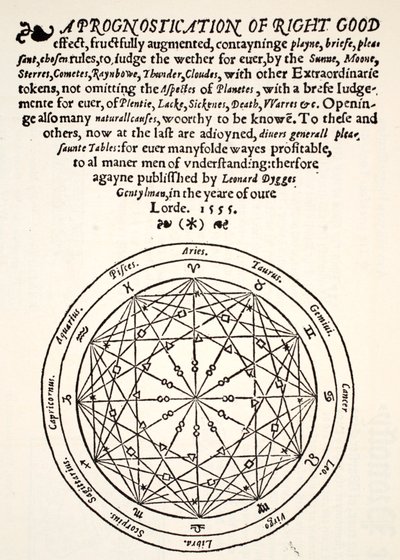 A PROGNOSTICATION OF RIGHT GOOD
effect, fructfully augmented, contayninge playne, briefe, plea
sant, chosen rules, to iudge the wether for euer, by the Sunne, Moone,
Sterres, Cometes, Raynbowe, Thunder, Cloudes, with other Extraordinarie
tokens, not omitting the Aspectes of Planetes, with a brefe Iudge-
mente for euer, of Plentie, Lacke, Sickenes, Death, VVarres &c. Openin-
ge also many naturall causes, woorthy to be knowē. To these and
others, now at the last are adioyned, diuers generall plea-
saunte Tables: for euer manyfolde wayes profitable,
to al maner men of vnderstanding: therfore
agayne publisshed by Leonard Dygges
Gentylman, in the yeare of oure
Lorde. 1555.
(*)
Aries.
Taurus.
Gemini.
Cancer
Leo.
Virgo
Libra.
Scorpius.
Sagittarius.
Capricornus.
Aquarius.
Pisces.